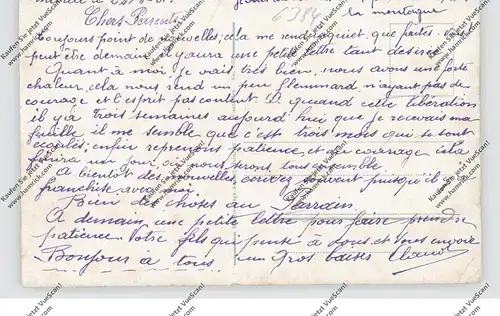 6384
la montagne
Chers Parents
toujours point de nouvelles, cela me rend inquiet, que faites-vous
peut être demain y aura une petite lettre tant désirée
Quant à moi je vais très bien, nous avons une forte
chaleur, cela nous rend un peu flemmard n'ayant pas de
courage et l'esprit pas content. A quand cette libération
il y a trois semaines aujourd'hui que je recevais ma
feuille il me semble que c'est trois mois qui se sont
écoulés; enfin reprenons patience et du courage cela
finira un jour, où nous serons tous ensemble
A bientôt des nouvelles, écrivez souvent puisqu'il y a
franchise avec moi
Bien de choses au
A demain une petite lettre pour faire prendre
patience. Votre fils qui pense à vous et vous envoie
Bonjour à tous un gros baiser